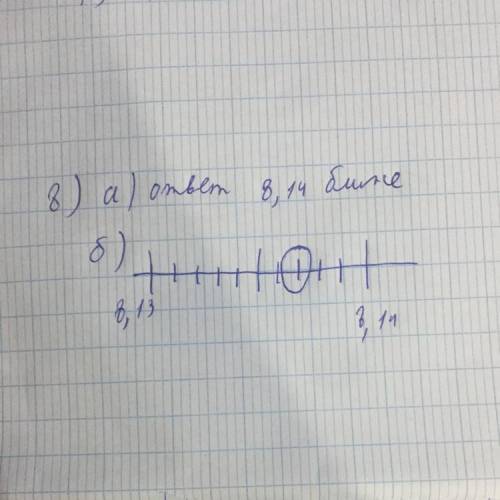 8) а) ответ 8,14 ближе
б)
8,13 8,14